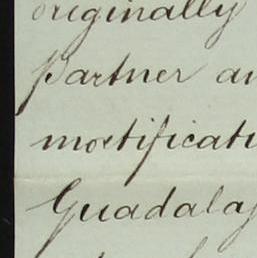 originally
partner an
mortificati
Guadalaj